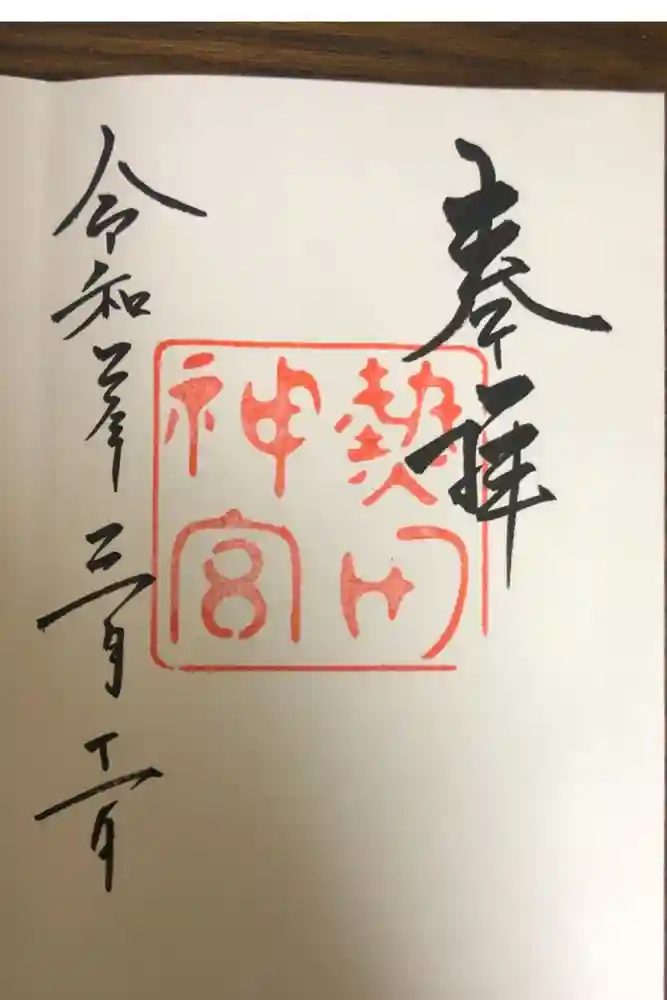 奉拝
熱田
神宮
令和年三月十一日